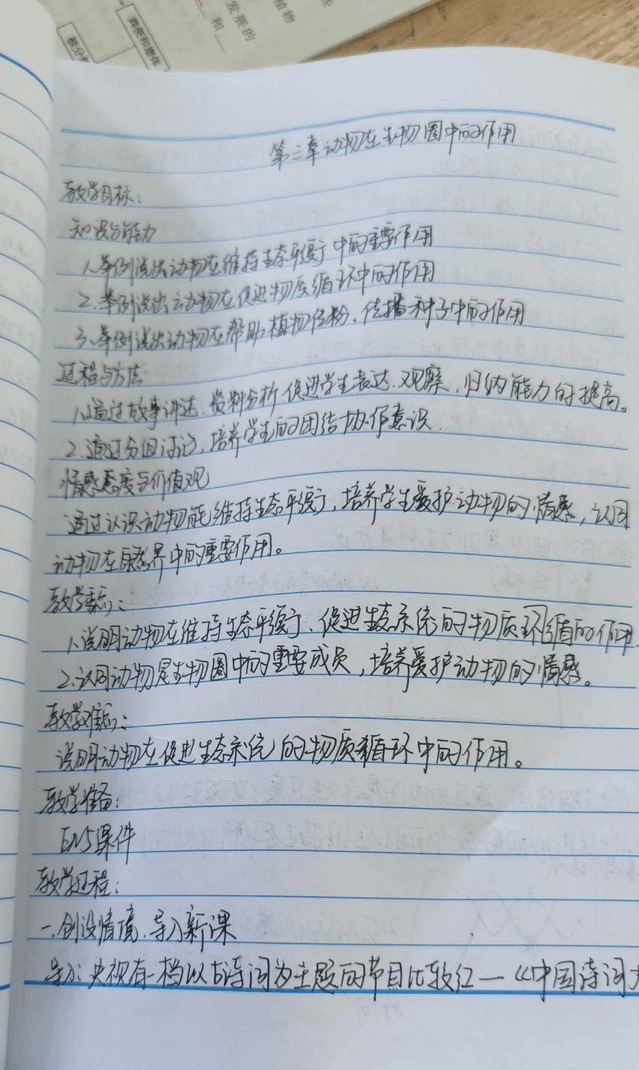 植物
发展的
和
第三章动物在生物圈中的作用
教学目标:
知识与能力
1.举例说出动物在维持生态平衡中的重要作用
2.举例说出动物在促进物质循环中的作用
3.举例说出动物在帮助植物传粉、传播种子中的作用
过程与方法
1.通过故事讲述、资料分析促进学生表达、观察、归纳能力的提高。
2.通过分组讨论,培养学生的团结协作意识.
情感态度与价值观
通过认识动物能维持生态平衡,培养学生爱护动物的情感,认同
动物在自然界中的重要作用。
教学重点:
1.说明动物在维持生态平衡、促进生态系统的物质环循的作用
2.认同动物是生物圈中的重要成员,培养爱护动物的情感。
教学难点:
说明动物在促进生态系统的物质循环中的作用。
教学准备:
EN5课件
教学过程:
一.创设情境,导入新课
导入:央视有一档以古诗词为主题的节目比较红—《中国诗词大